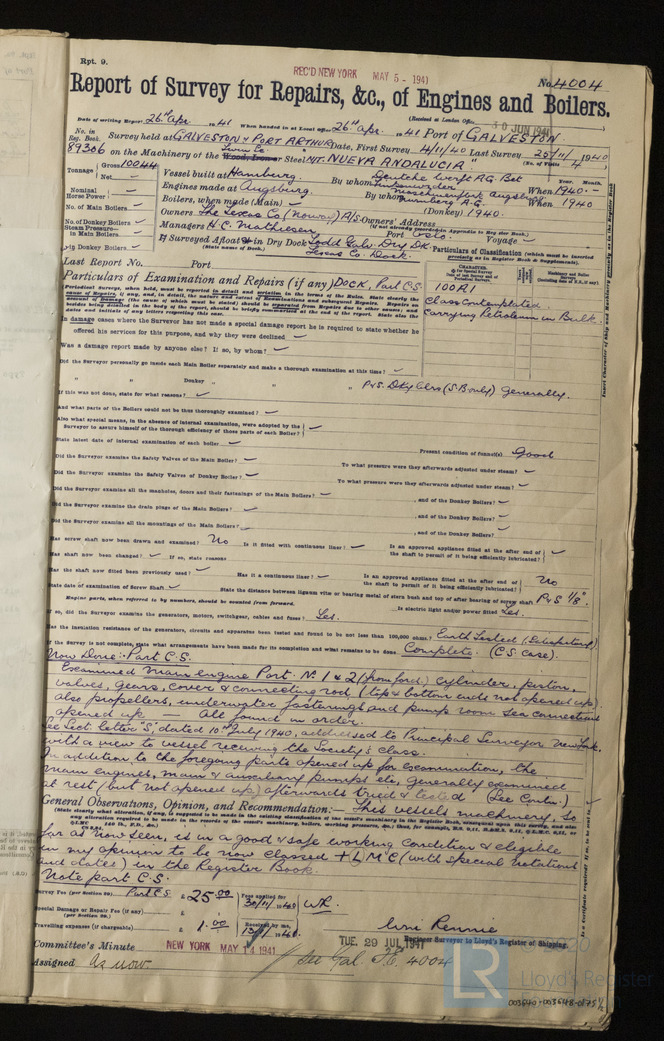 Rpt. 9.
REC'D NEW YORK MAY 5 - 1941
No. 4004
Report of Survey for Repairs, &c., of Engines and Boilers.
(Received at London Office 30 JUN 1941
Date of writing Report 26th Apr. 1941 When handed in at Local Office 26th Apr. 1941 Port of GALVESTON
No. in Reg. Book. Survey held at GALVESTON & PORT ARTHUR Date, First Survey 4/11/40 Last Survey 25/11/1940
89306 on the Machinery of the Wood, Iron or Steel "NUEVA ANDALUCIA"
(No. of Visits 4)
Tonnage Gross 10044 Net —
Vessel built at Hamburg. By whom Deutsche Werft A.G. Bet. When 1940 —
Year. Month.
Engines made at Augsburg. By whom Augsburg Nurnberg A.G. When 1940
Nominal Horse Power —
Boilers, when made (Main) — (Donkey) 1940.
No. of Main Boilers —
Owners The Texas Co (Norway) A/S Owners' Address
(if not already recorded in Appendix to Reg. Book.)
No. of Donkey Boilers —
Managers H.C. Mathiesen Port Oslo Voyage —
Steam Pressure in Main Boilers —
If Surveyed Afloat or in Dry Dock Todd Galv. Dry Dk.
(State name of Dock.) Texas Co. Dock.
Particulars of Classification (which must be inserted precisely as in Register Book & Supplements).
Last Report No. Port
Particulars of Examination and Repairs (if any) DOCK, Part C.S.
100A1
Class Contemplated
Carrying Petroleum in Bulk.
In damage cases where the Surveyor has not made a special damage report he is required to state whether he
offered his services for this purpose, and why they were declined —
Was a damage report made by anyone else? If so, by whom? —
Did the Surveyor personally go inside each Main Boiler separately and make a thorough examination at this time? —
" " Donkey " " " P&S. Dky Blrs (S. Bould) Generally.
If this was not done, state for what reasons? —
And what parts of the Boilers could not be thus thoroughly examined? —
Also what special means, in the absence of internal examination, were adopted by the
Surveyor to assure himself of the thorough efficiency of those parts of each Boiler? —
State latest date of internal examination of each boiler — Present condition of funnel(s) Good
Did the Surveyor examine the Safety Valves of the Main Boiler? — To what pressure were they afterwards adjusted under steam? —
Did the Surveyor examine the Safety Valves of Donkey Boiler? — To what pressure were they afterwards adjusted under steam? —
Did the Surveyor examine all the manholes, doors and their fastenings of the Main Boilers? — , and of the Donkey Boilers? —
Did the Surveyor examine the drain plugs of the Main Boilers? — , and of the Donkey Boilers? —
Did the Surveyor examine all the mountings of the Main Boilers? — , and of the Donkey Boilers? —
Has screw shaft now been drawn and examined? No Is it fitted with continuous liner? — Is an approved appliance fitted at the after end of
the shaft to permit of it being efficiently lubricated? —
Has shaft now been changed? — If so, state reasons
Has the shaft now fitted been previously used? — Has it a continuous liner? — Is an approved appliance fitted at the after end of
the shaft to permit of it being efficiently lubricated? No
State date of examination of Screw Shaft — State the distance between lignum vitæ or bearing metal of stern bush and top of after bearing of screw shaft P&S 1/8".
Engine parts, when referred to by numbers, should be counted from forward. Is electric light and/or power fitted Yes.
If so, did the Surveyor examine the generators, motors, switchgear, cables and fuses? Yes.
Has the insulation resistance of the generators, circuits and apparatus been tested and found to be not less than 100,000 ohms?
If the Survey is not complete, state what arrangements have been made for its completion and what remains to be done Complete. (C.S. Case).
Now Done: Part C.S.
Examined main engine Port. No. 1 & 2 (from ford) cylinder, piston,
valves, gears, cover & connecting rod (top & bottom ends not opened up)
also propellers, underwater fastenings and pump room sea connections
opened up. — All found in order.
See Sect. Letter "S", dated 10th July 1940, addressed to Principal Surveyor New York.
with a view to vessel receiving the Society's class.
In addition to the foregoing parts opened up for examination, the
main engines, main & auxiliary pumps etc, generally examined
at rest (but not opened up) afterwards tried & tested (See Contn.)
General Observations, Opinion, and Recommendation:— This vessels machinery, so
far as now seen, is in a good & safe working condition & eligible
in my opinion to be now classed + LMC (with special notations
and dates) in the Register Book.
Note part C.S.
Survey Fee (per Section 29). Part C.S. $ 25.00 Fees applied for 30/11/1940
Special Damage or Repair Fee (if any) (per Section 29.)
Travelling expenses (if chargeable) $ 1.00 Received by me,
Engineer Surveyor to Lloyd's Register of Shipping.
Committee's Minute NEW YORK MAY 14 1941 TUE. 29 JUL 1941
Assigned As now. See Gal. F.E. 4004
LR Lloyd's Register
003640-003648-0175 1/2